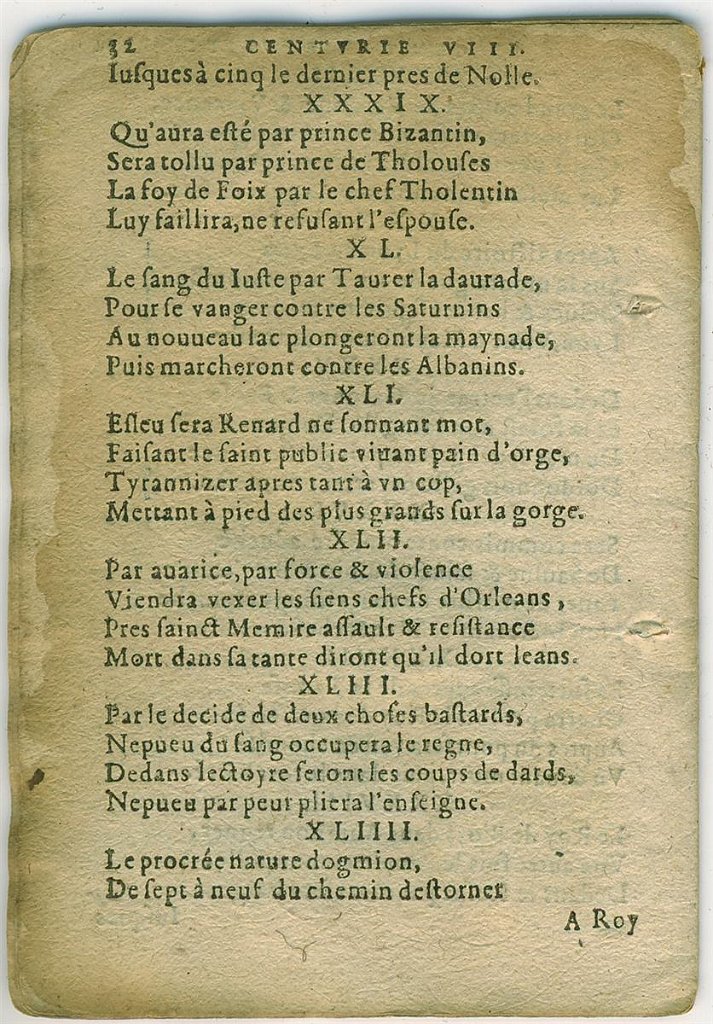 32 CENTVRIE VIII.
Iuſques à cinq le dernier pres de Nolle.
XXXIX.
Qu'aura eſté par prince Bizantin,
Sera tollu par prince de Tholouſes
La foy de Foix par le chef Tholentin
Luy faillira, ne refuſant l'eſpouſe.
XL.
Le ſang du Iuſte par Taurer la daurade,
Pour ſe vanger contre les Saturnins
Au nouueau lac plongeront la maynade,
Puis marcheront contre les Albanins.
XLI.
Eſleu ſera Renard ne ſonnant mot,
Faiſant le ſaint public viuant pain d'orge,
Tyrannizer apres tant à vn cop,
Mettant à pied des plus grands ſur la gorge.
XLII.
Par auarice, par force & violence
Viendra vexer les ſiens chefs d'Orleans,
Pres ſainct Memire aſſault & reſiſtance
Mort dans ſa tante diront qu'il dort leans.
XLIII.
Par le decide de deux choſes baſtards,
Nepueu du ſang occupera le regne,
Dedans lectoyre ſeront les coups de dards,
Nepueu par peur pliera l'enſeigne.
XLIIII.
Le procrée nature dogmion,
De ſept à neuf du chemin deſtorner
A Roy